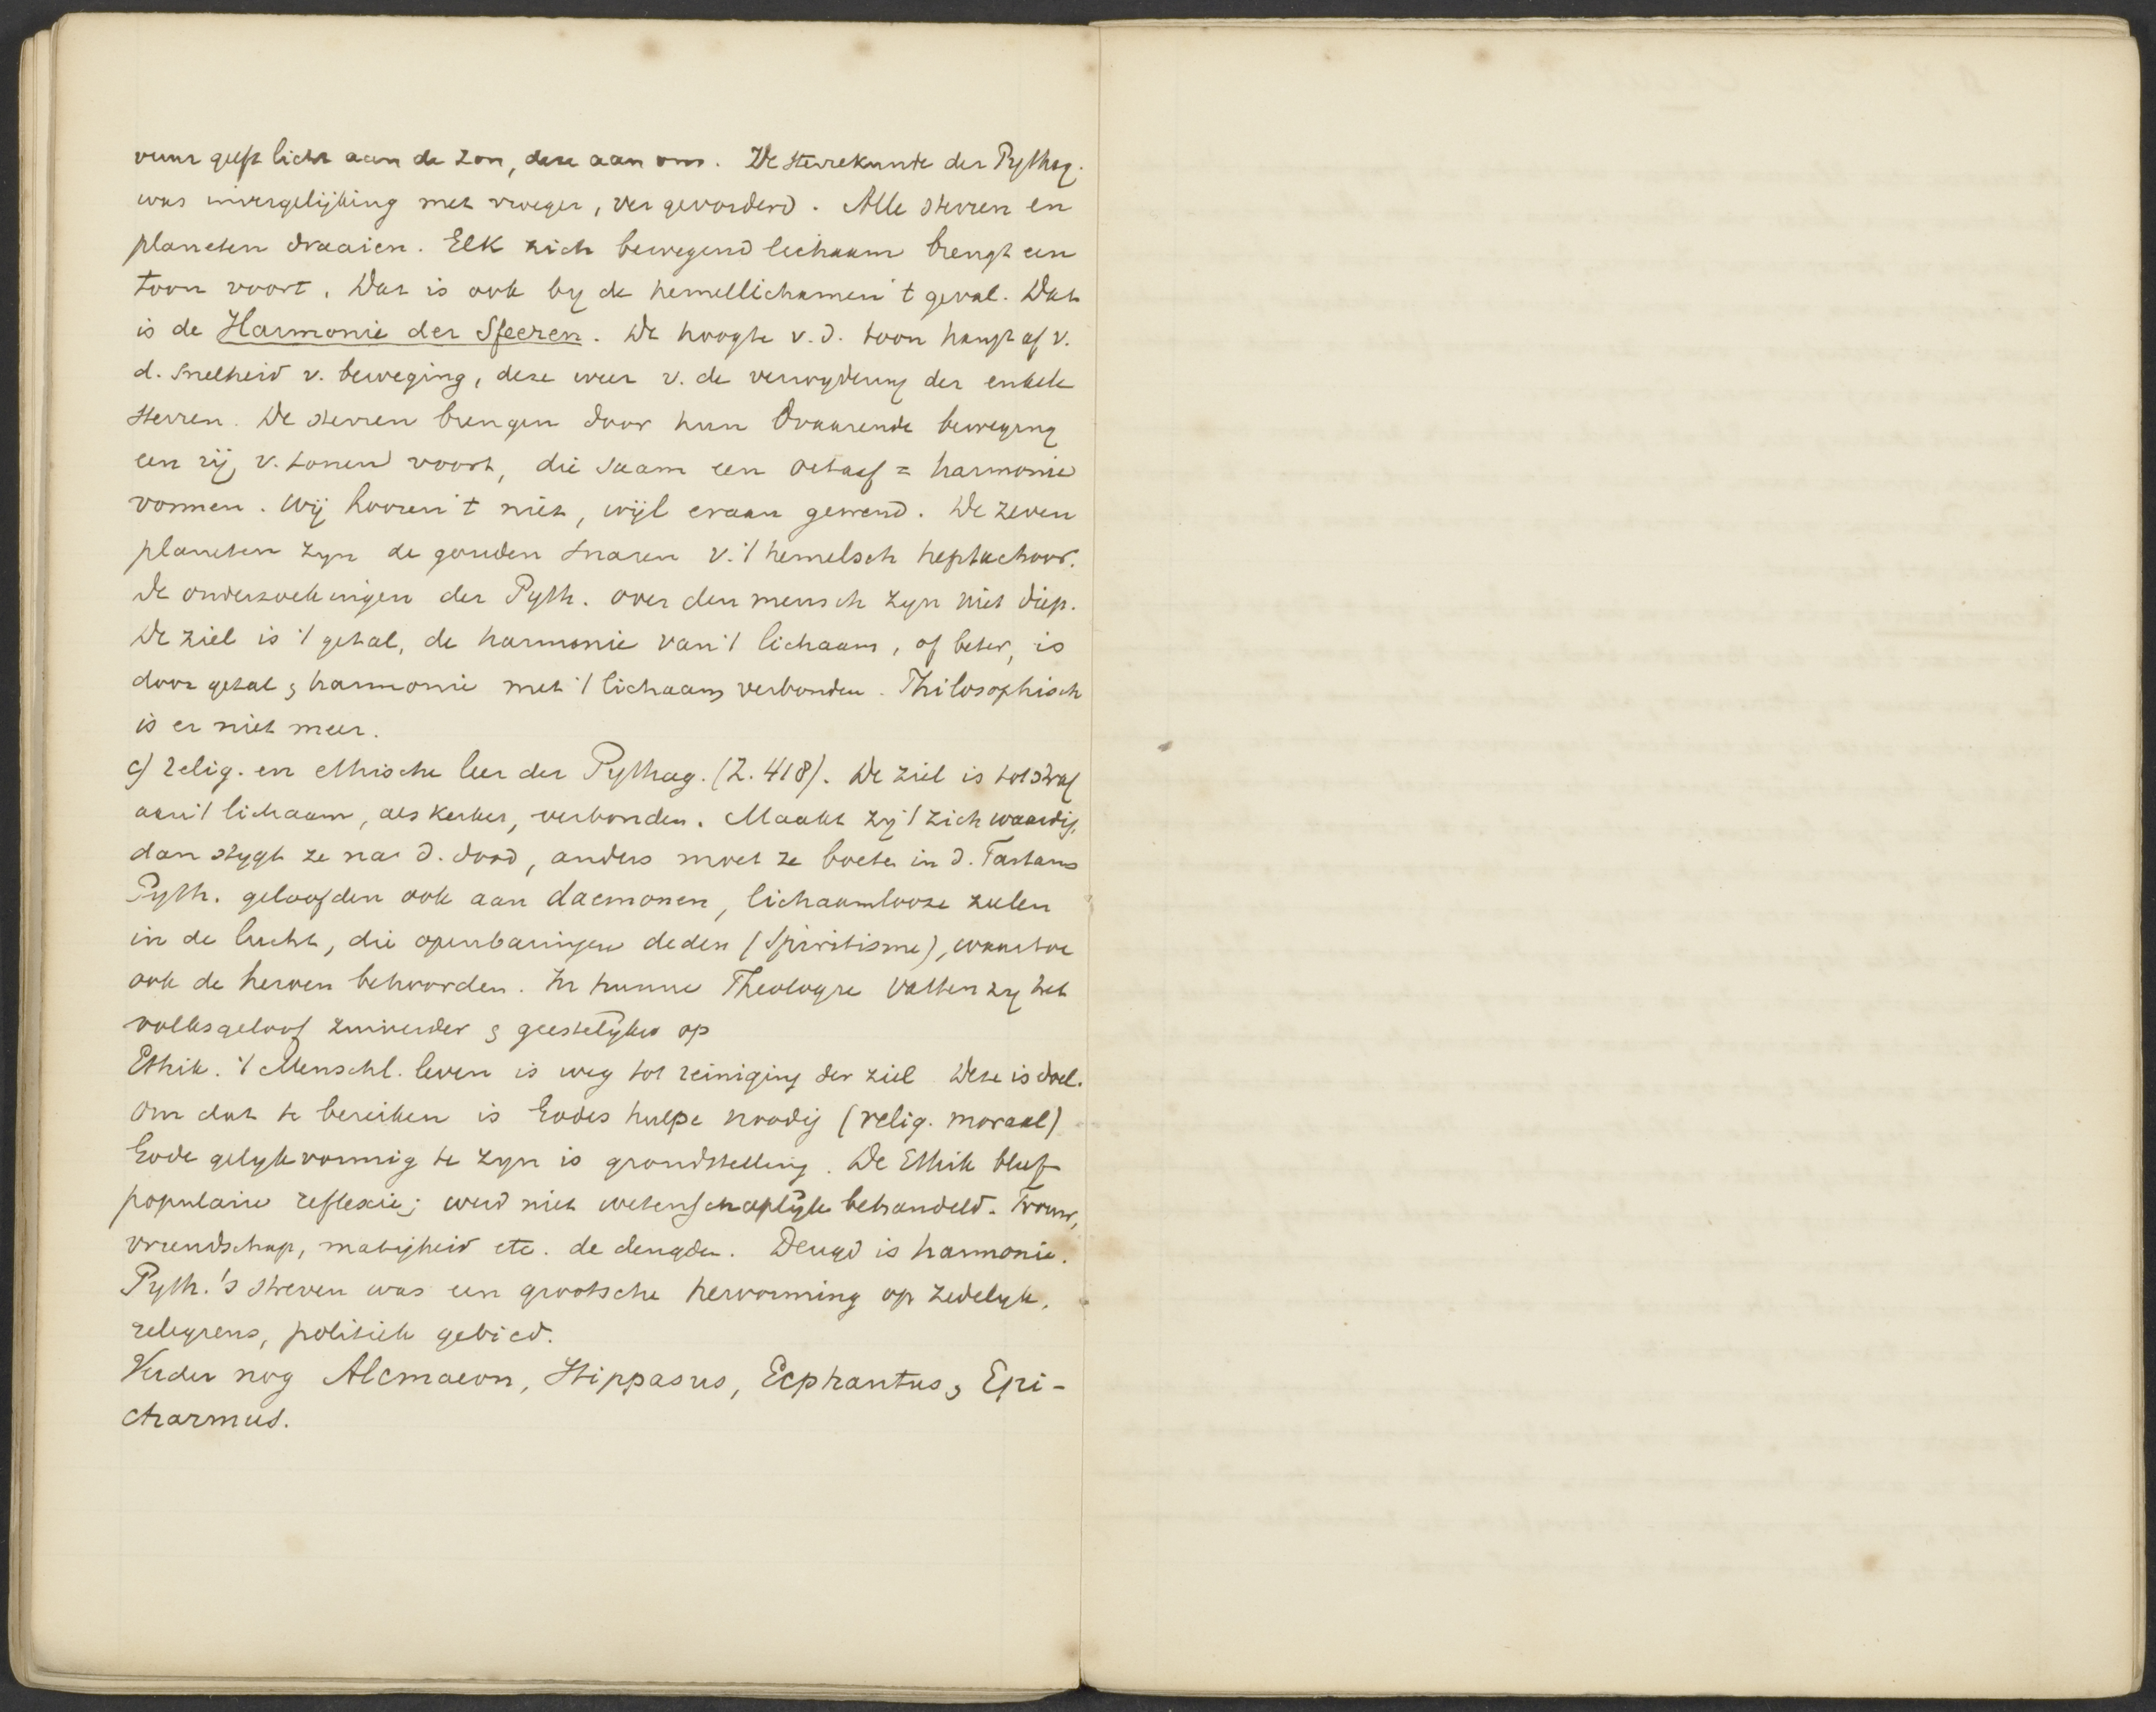 vuur geeft licht aan de zon, deze aan ons. De sterrekunde der Pythag.
was in vergelijking met vroeger, ver gevorderd. Alle sterren en
planeten draaien. Elk zich bewegend lichaam brengt een
toon voort. Dat is ook by de hemellichamen 't geval. Dat
is de Harmonie der Sfeeren. De hoogte v. d. toon hangt af v.
d. snelheid v. beweging, deze weer v. de verwydering der enkele
sterren. De sterren brengen door hun draaiende beweging
een rij v. tonen voort, die saam een octaaf = harmonie
vormen. Wij hooren 't niet, wijl eraan gewend. De zeven
planeten zyn de gouden snaren v. 't hemelsch heptachoor.
De onderzoekingen der Pyth. over den mensch zyn niet diep.
De ziel is 't getal, de harmonie van 't lichaam, of beter, is
door getal & harmonie met 't lichaam verbonden. Philosophisch
is er niet meer.
c) relig. en ethische leer der Pythag. (Z. 418). De ziel is tot straf
aan 't lichaam, als kerker, verbonden. Maakt zy 't zich waardig,
dan stygt ze na d. dood, anders moet ze boeten in d. Tartarus
Pyth. geloofden ook aan daemonen, lichaamlooze zielen
in de lucht, die openbaringen deden (Spiritisme), waartoe
ook de heroen behoorden. In hunne Theologie vatten zy het
volksgeloof zuiverder & geestelyker op
Ethik. 't Menschl. leven is weg tot reiniging der ziel Deze is doel.
Om dat te bereiken is Godes hulpe noodig (relig. moraal)
Gode gelykvormig te zyn is grondstelling. De Ethik bleef
populaire reflexie; werd niet wetenschaplyk behandeld. Trouw,
vriendschap, matigheid etc. de deugden. Deugd is harmonie.
Pyth.'s streven was een grootsche hervorming op zedelyk,
religieus, politiek gebied.
Verder nog Alcmaeon, Hippasus, Ecphantus, & Epi-
charmus.